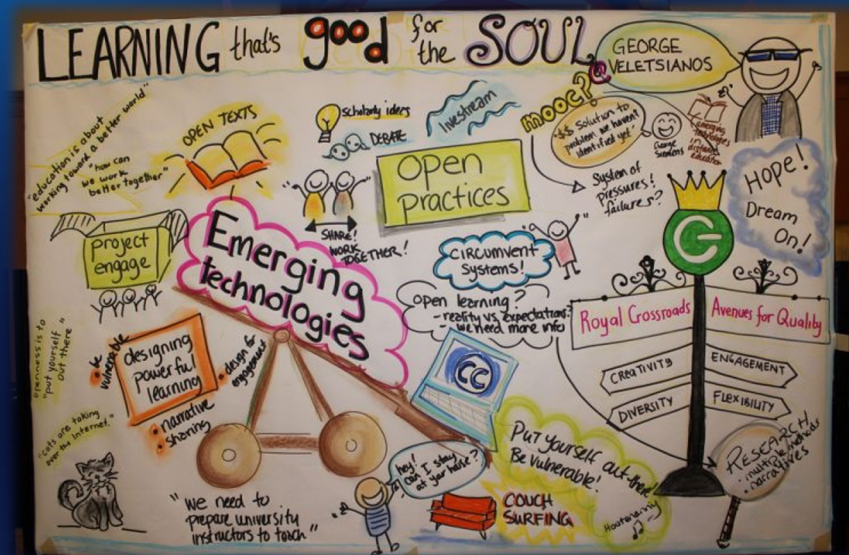 LEARNING that's good for the SOUL
GEORGE
VELETSIANOS
"education is about
working toward a better world"
"how can
we work
better together"
OPEN TEXTS
scholarly ideas
DEBATE
livestream
mooc?
"$$ solution to
problem we haven't
identified yet"
George
Siemens
Emerging
technologies
in
distance
education
System of
pressures!
failures?
HOPE!
Dream
On!
Open
Practices
SHARE!
WORK
TOGETHER!
project
engage
Emerging
technologies
CIRCUMVENT
SYSTEMS!
Open learning?
- reality vs. expectations?
- we need more info
Royal Crossroads
Avenues for Quality
CREATIVITY
ENGAGEMENT
DIVERSITY
FLEXIBILITY
"openness is to
"put yourself
out there"
be
vulnerable
designing
powerful
learning
design for
engagement
narrative
sharing
cc
"cats are taking
over the internet."
"we need to
prepare university
instructors to teach"
hey!
Can I stay
at your house?
COUCH
SURFING
Put yourself out there!
Be Vulnerable!
RESEARCH
multiple methods
narratives